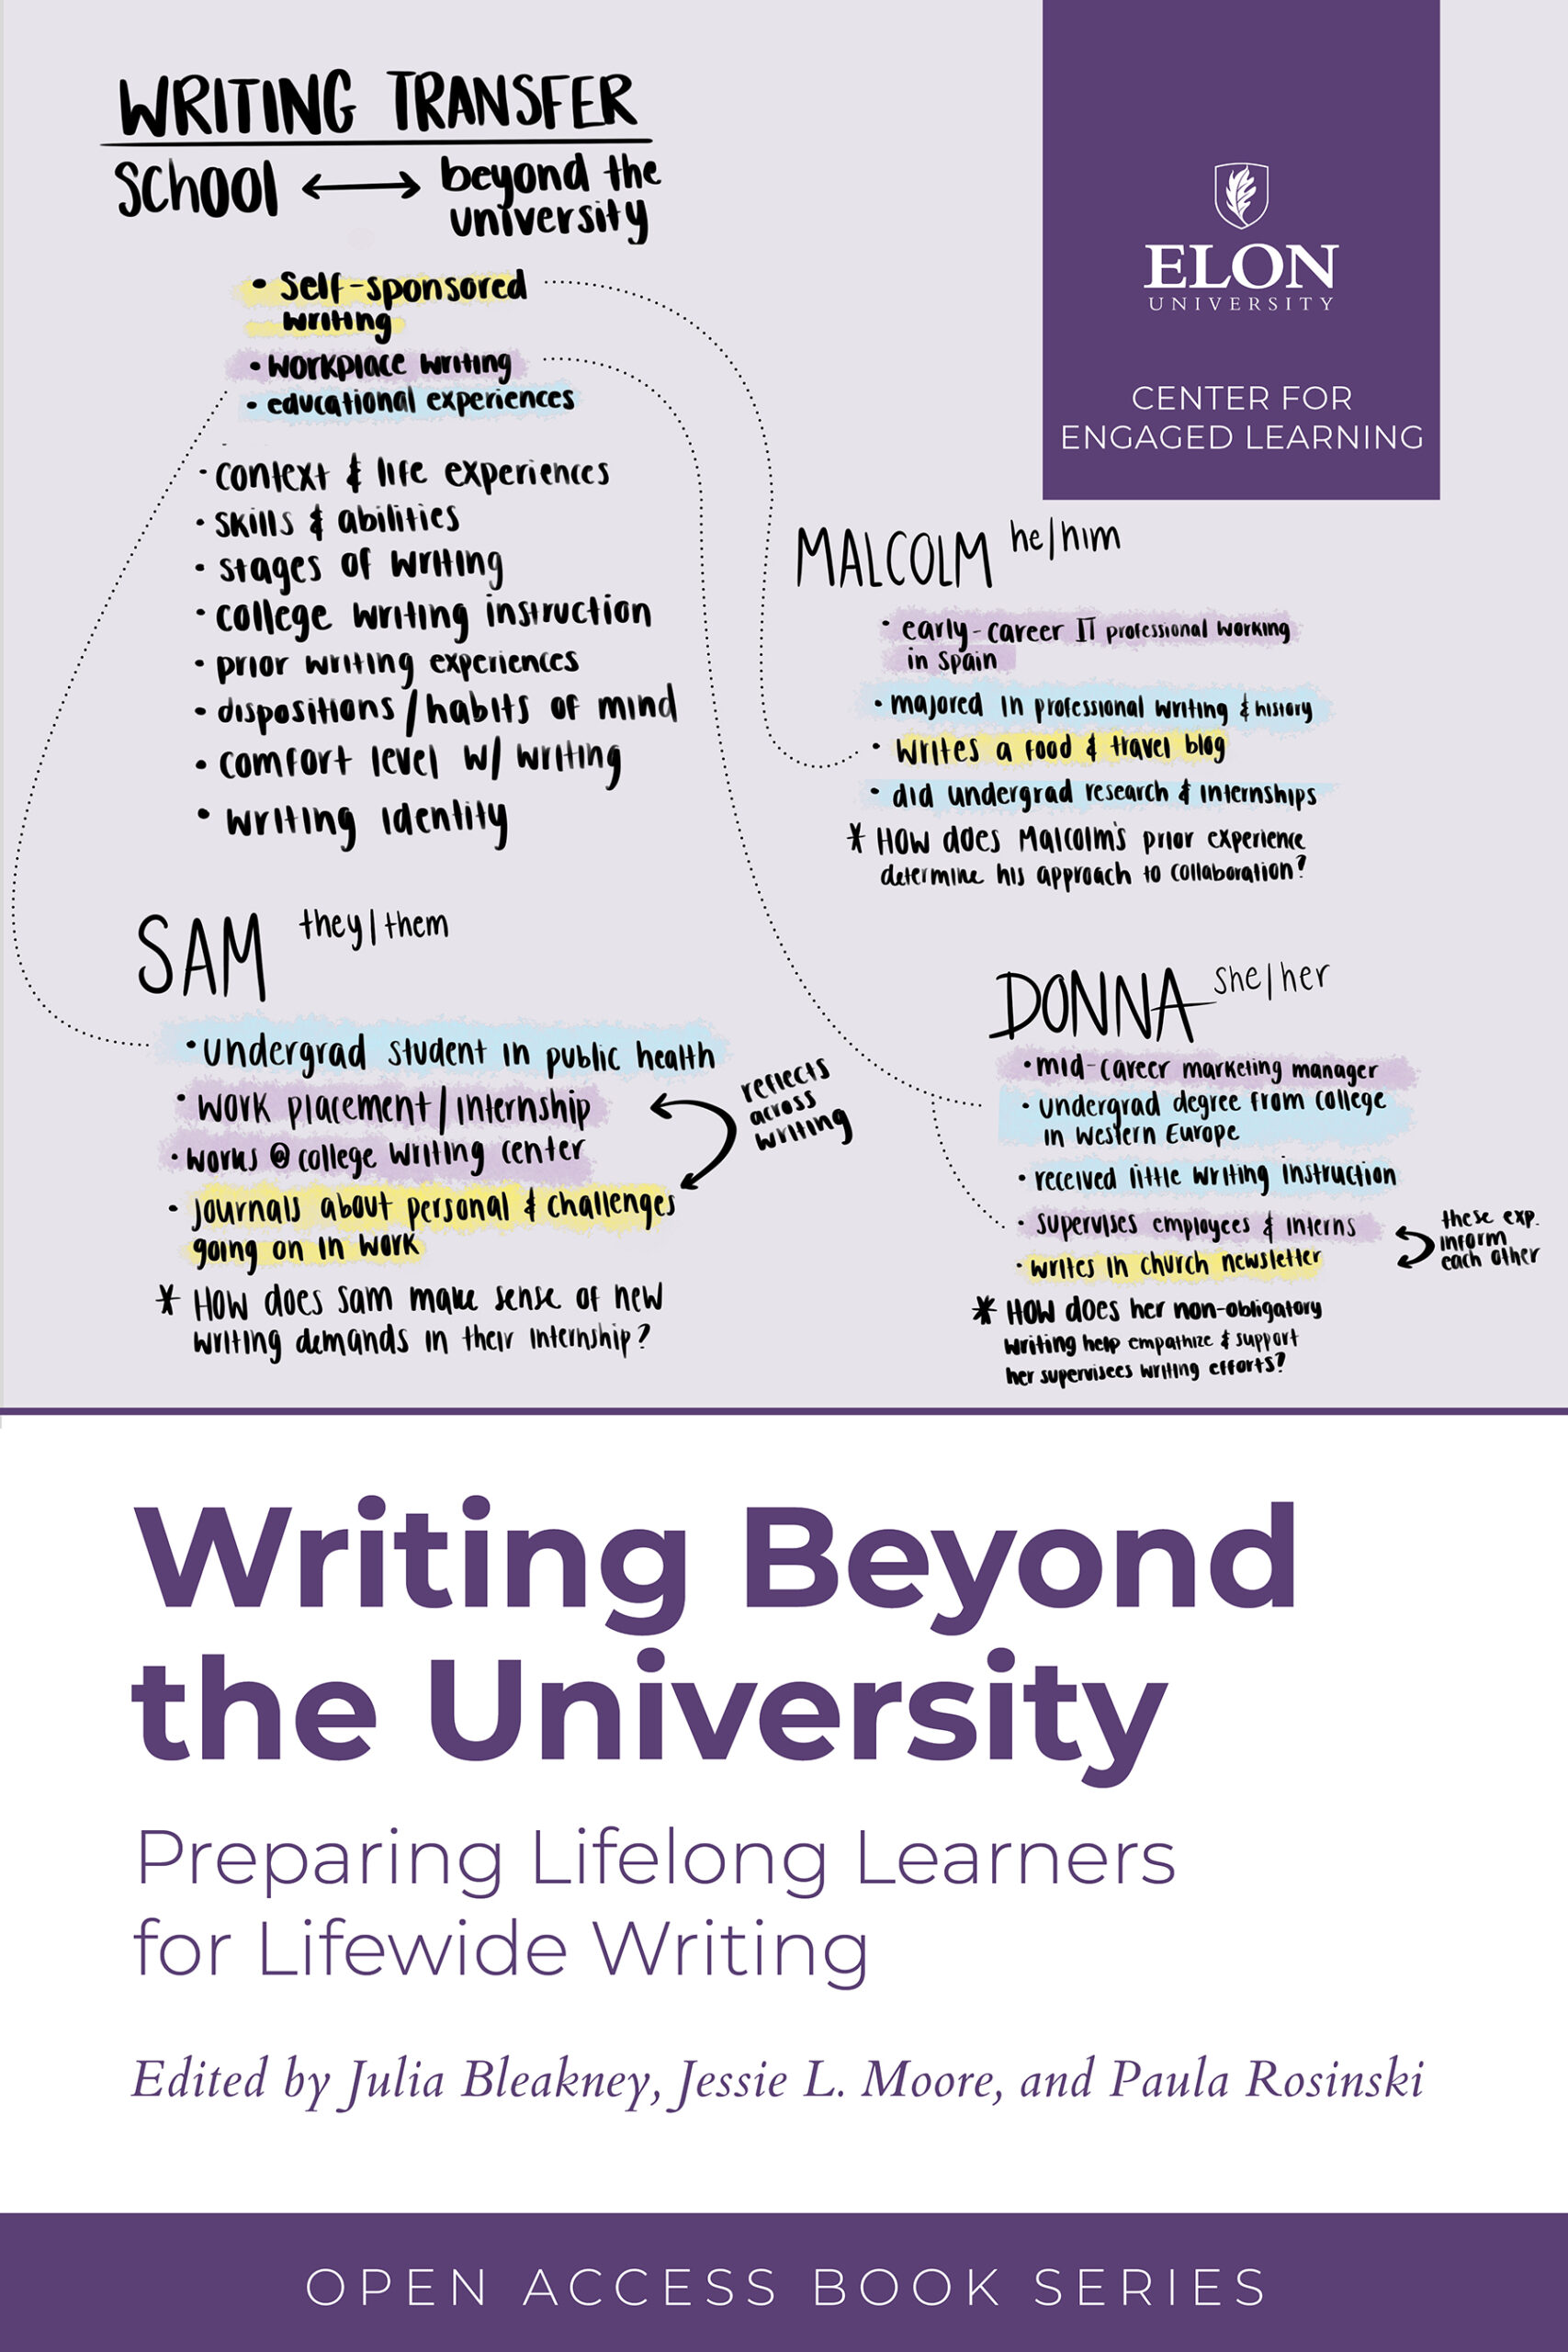 WRITING TRANSFER
School ↔ beyond the
university
• Self-sponsored
writing
• workplace writing
• educational experiences
• context & life experiences
• skills & abilities
• stages of writing
• college writing instruction
• prior writing experiences
• dispositions/habits of mind
• comfort level w/ writing
• writing identity
ELON
UNIVERSITY
CENTER FOR
ENGAGED LEARNING
MALCOLM he/him
• early-career IT professional working
in Spain
• majored in professional writing & history
• writes a food & travel blog
• did undergrad research & internships
* How does Malcolm's prior experience
determine his approach to collaboration?
SAM they/them
• undergrad student in public health
• work placement/internship
• works @ college writing center
• journals about personal & challenges
going on in work
reflects
across
writing
* How does Sam make sense of new
writing demands in their internship?
DONNA she/her
• mid-career marketing manager
• undergrad degree from college
in Western Europe
• received little writing instruction
• supervises employees & interns
• writes in church newsletter
these exp.
inform
each other
* How does her non-obligatory
writing help empathize & support
her supervisees writing efforts?
Writing Beyond
the University
Preparing Lifelong Learners
for Lifewide Writing
Edited by Julia Bleakney, Jessie L. Moore, and Paula Rosinski
OPEN ACCESS BOOK SERIES